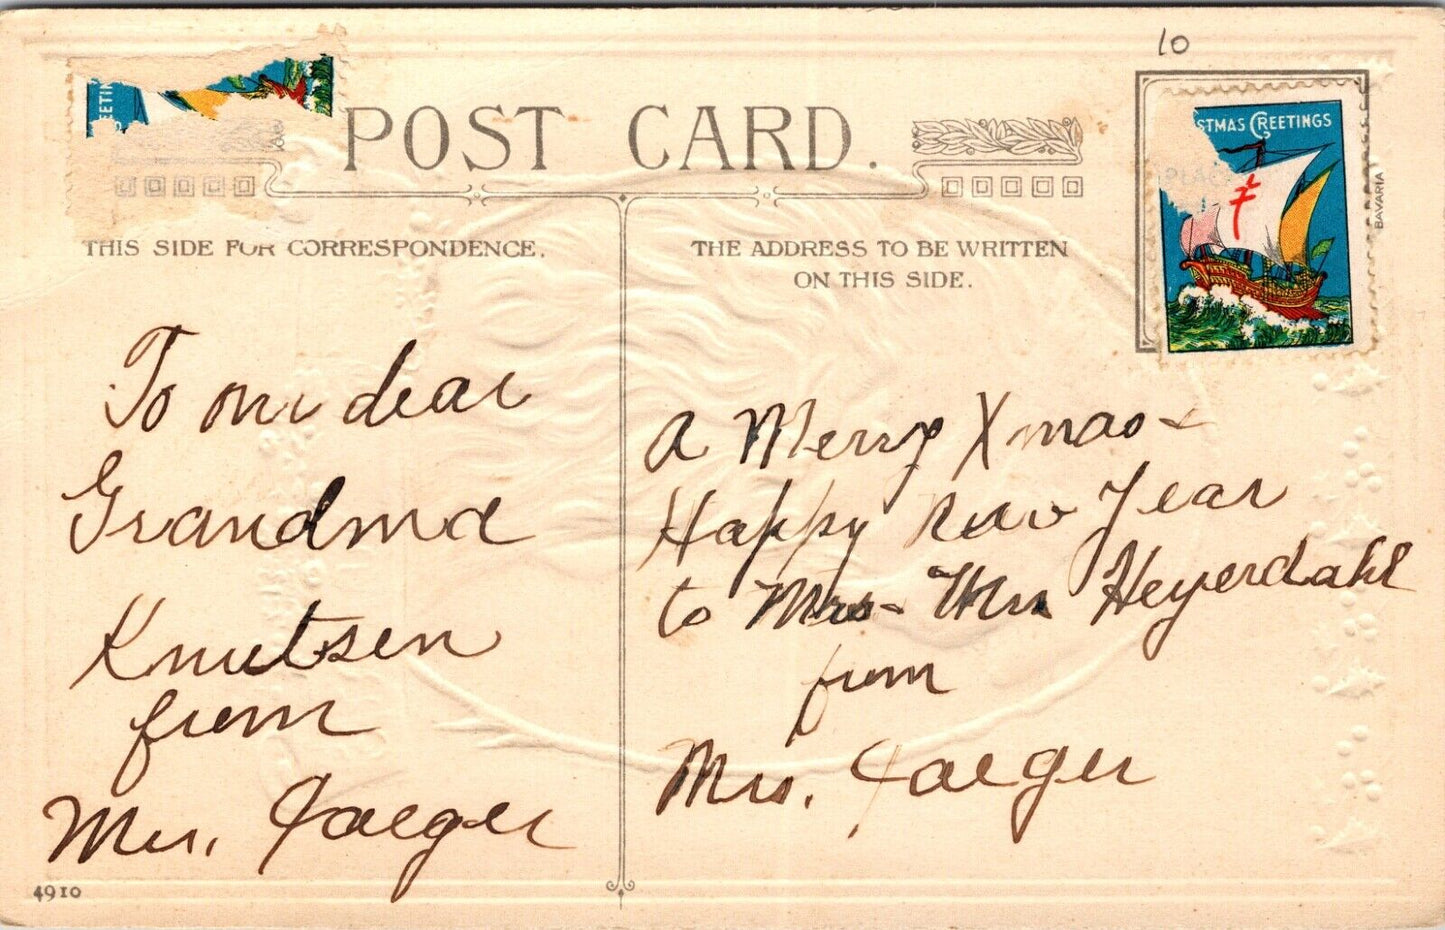 10
EETIN
POST CARD.
STMAS GREETINGS
PLAC
BAVARIA
THIS SIDE FOR CORRESPONDENCE.
THE ADDRESS TO BE WRITTEN
ON THIS SIDE.
To our dear
Grandma
Knutsen
from
Mrs. Jaeger
A Merry Xmas -
Happy New Year
to Mrs - Mr Heyerdahl
from
Mrs. Jaeger
4910